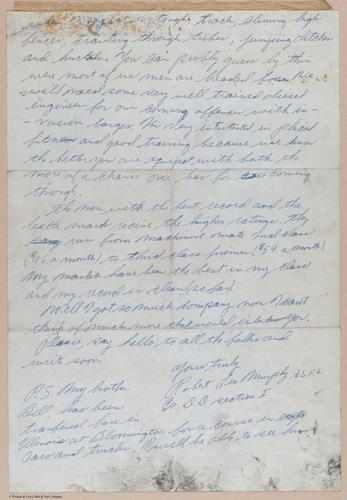 tough track, climing high
fences, crawling through tubes, jumping ditches
and hurtels. You can probly guess by this
were most of us men are headed for. We
will need some very well trained diesel
engineer for our coming offensev with in-
vasion barges. I'm very intrested in phisical
fitness and good training because we know
the better you are equipet with both the
more of a chance one has for coming
through.
The men with the best record and the
best mark recive the higher ratings. They
run from machinist mate 2nd class
($96 a month) to third class firemen ($54 a month)
My marks have been the best in my class
and my record is clean so far.
Well I got so much company now I cant
think of much more that would intrest you.
Please, say hello to all the folks and
write soon
Yours truly
Robert Leo Murphy
Co. D.D. section I
P.S. My brother
Bill has been
tranfered here in
Illinois at Bloomington for a course in
cars and trucks. I will be able to see him.